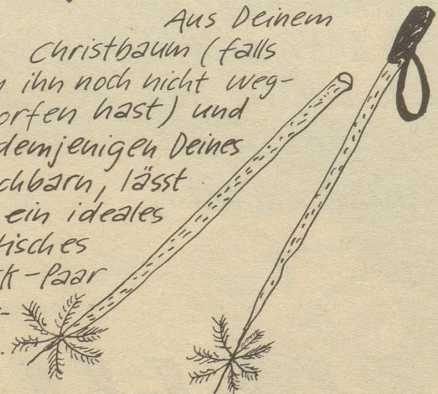 Aus Deinem
Christbaum (falls
ihn noch nicht weg-
orfen hast) und
demjenigen Deines
chbarn, lässt
ein ideales
tisches
k-Paar